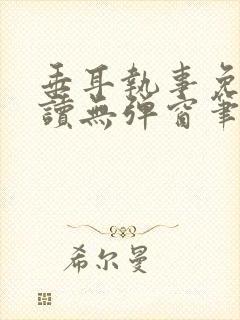 垂耳執事免
讀無彈窗筆
希尔曼